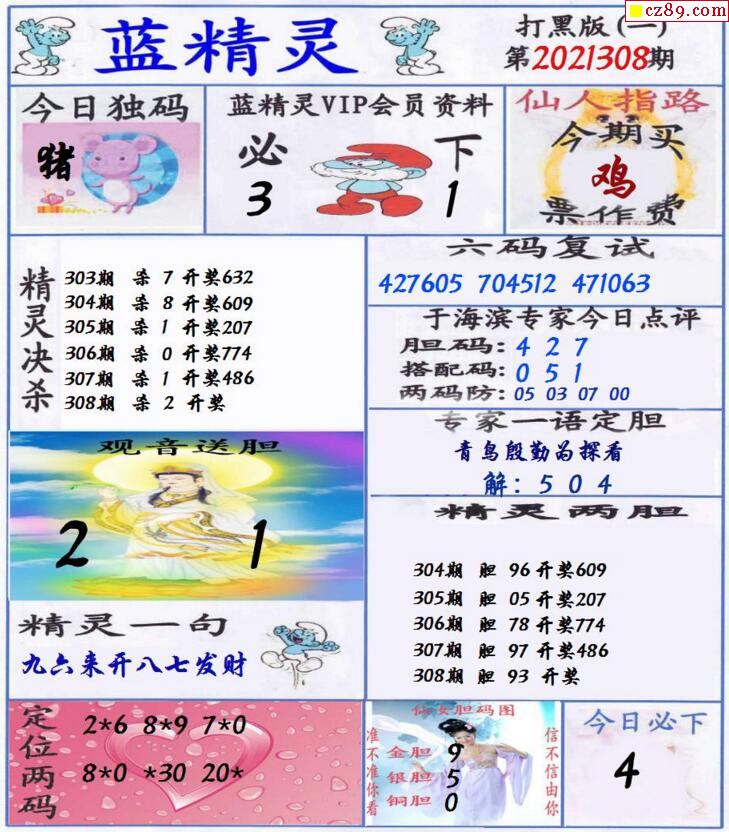 cz89.com
蓝精灵
打黑版(一)
第2021308期
今日独码
猪
蓝精灵VIP会员资料
必 下
3 1
仙人指路
今期买
鸡
票作费
精灵决杀
303期 杀 7 开奖632
304期 杀 8 开奖609
305期 杀 1 开奖207
306期 杀 0 开奖774
307期 杀 1 开奖486
308期 杀 2 开奖
六码复试
427605 704512 471063
于海滨专家今日点评
胆码：4 2 7
搭配码：0 5 1
两码防：05 03 07 00
专家一语定胆
青鸟殷勤为探看
解：5 0 4
观音送胆
2 1
精灵两胆
304期 胆 96 开奖609
305期 胆 05 开奖207
306期 胆 78 开奖774
307期 胆 97 开奖486
308期 胆 93 开奖
精灵一句
九六来开八七发财
定位两码
2*6 8*9 7*0
8*0 *30 20*
仙女胆码图
准不准你看
金胆 9
银胆 5
铜胆 0
信不信由你
今日必下
4